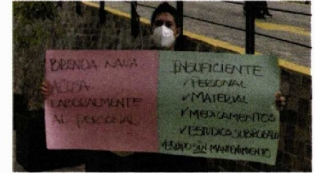 BRENDA NAVA
ACOSA
LABORALMENTE
AL PERSONAL
INSUFICIENTE
✓PERSONAL
✓MATERIAL
✓MEDICAMENTOS
✓ESTUDIOS SUBROGADOS
EQUIPO SIN MANTENIMIENTO